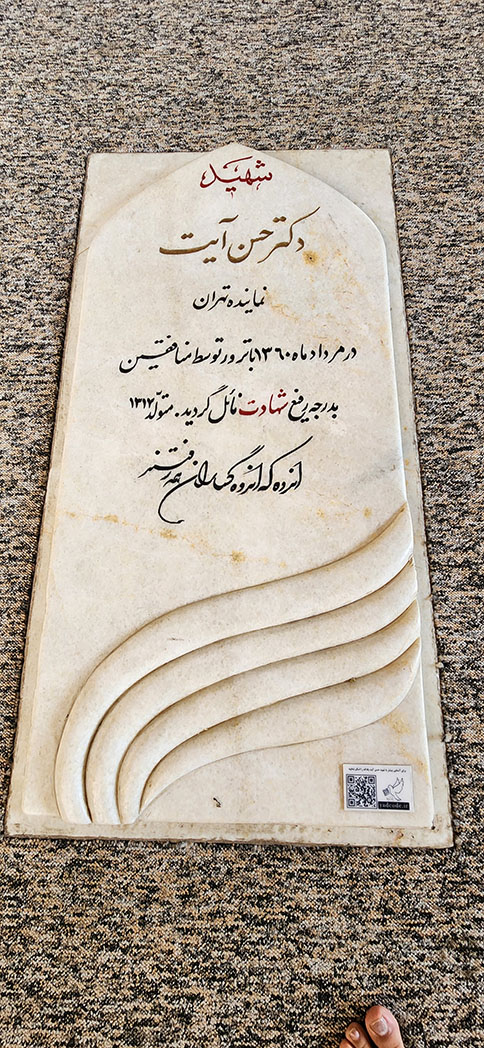 شهید
دکتر حسن آیت
نماینده تهران
در مرداد ماه ۱۳۶۰ با ترور توسط منافقین
بدرجه رفیع شهادت نائل گردید. متولد ۱۳۱۷
اندوه که اندوه گساران همه رفتند
yadcode.ir